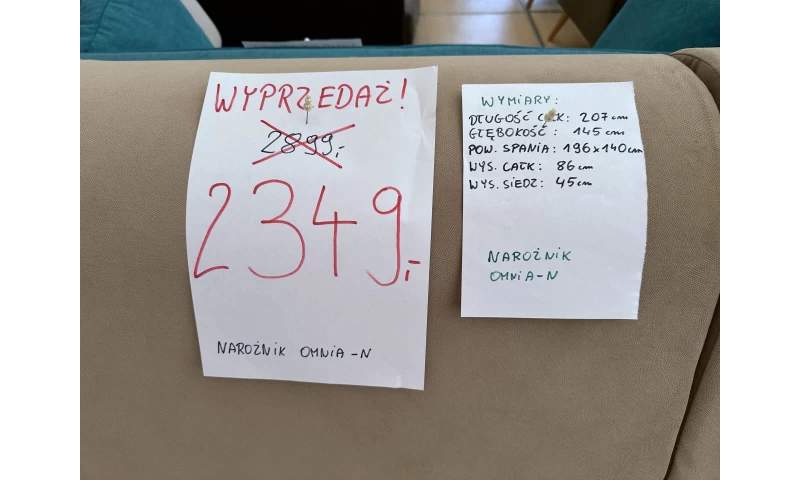 WYPRZEDAŻ!
2899,-
2349,-
NAROŻNIK OMNIA-N
WYMIARY:
DŁUGOŚĆ CAŁK: 207 cm
GŁĘBOKOŚĆ: 145 cm
POW. SPANIA: 196x140cm
WYS. CAŁK: 86 cm
WYS. SIEDZ: 45 cm
NAROŻNIK
OMNIA-N